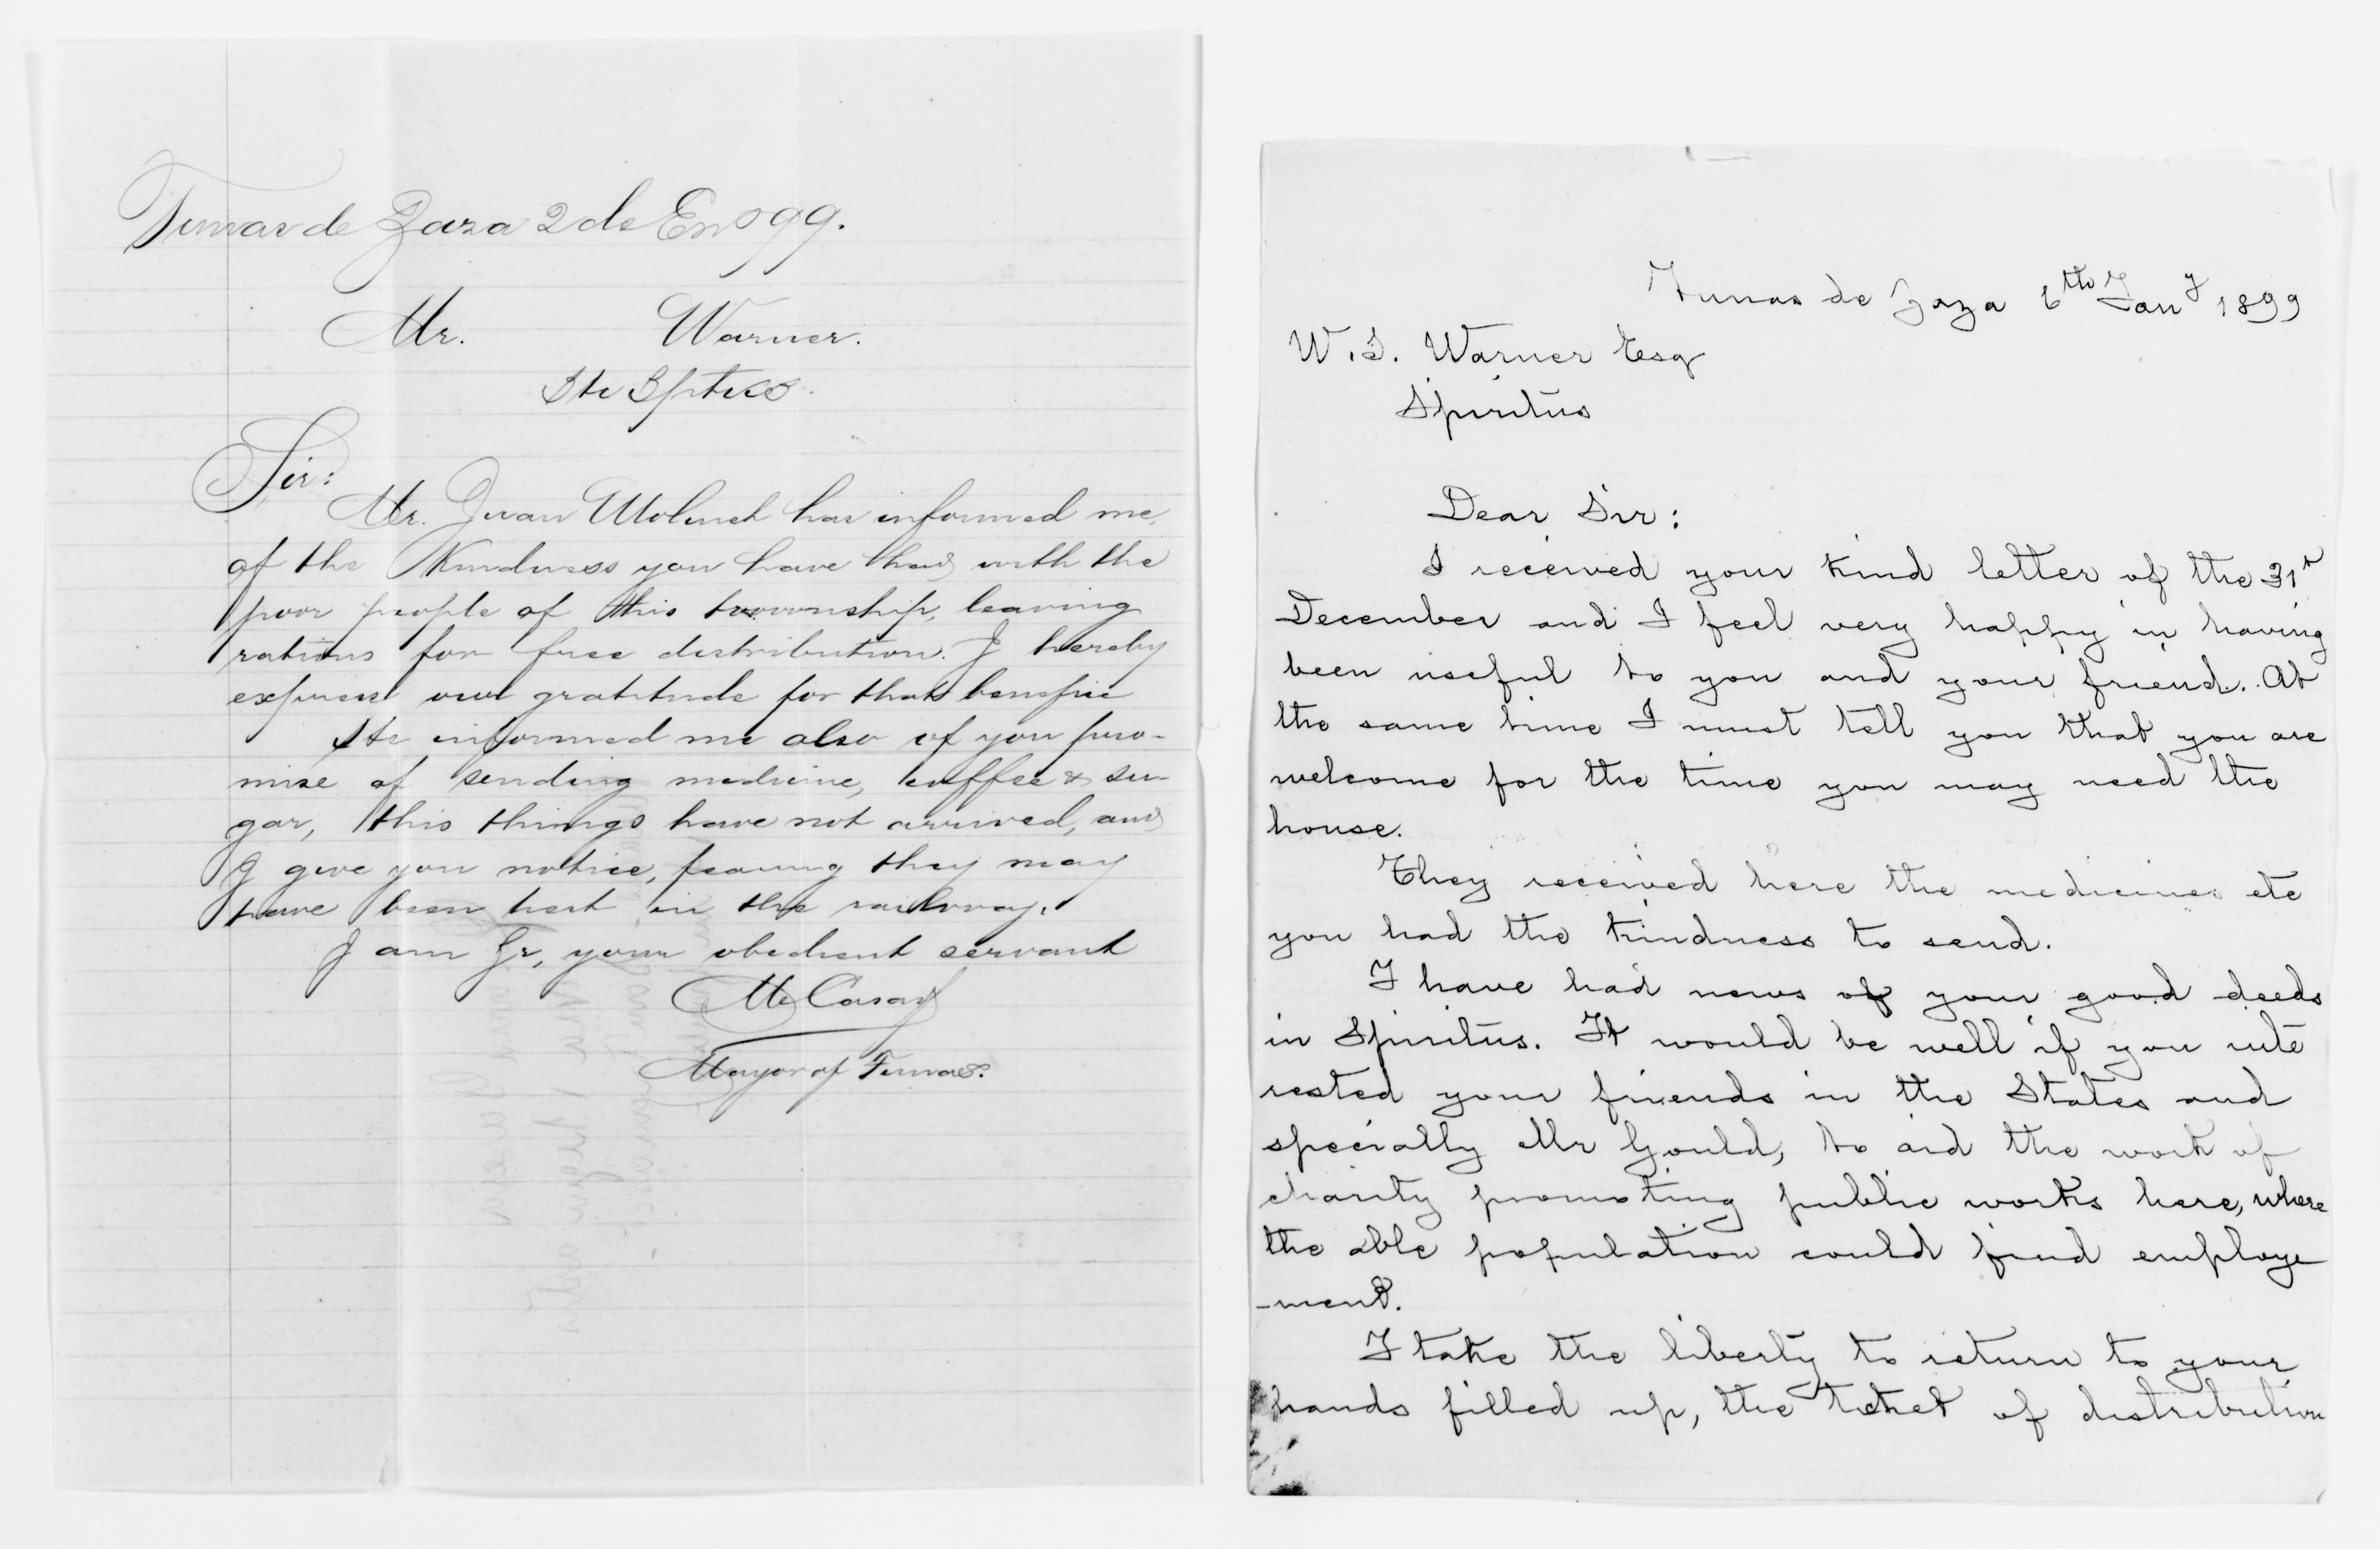 Tunas de Zaza 2 de En099.
Mr. Warner.
Sti Sptus.
Sir:
Mr. Juan Molinet has informed me,
of the Kindness you have had with the
poor people of this towwnship, leaving
rations for free distribution. I hereby
express our gratitude for that benefic
He informed me also of you pro-
mise of sending medicine, coffee & su-
gar, this things have not arrived, and
I give you notice, fearing they may
have been lost in the railway.
I am Sr, your obedient servant
M. Casas
Mayor of Tunas.
Tunas de Zaza 6th Jany 1899
W. S. Warner Esq
Spiritus
Dear Sir:
I received your kind letter of the 31st
December and I feel very happy in having
been useful to you and your friend. At
the same time I must tell you that you are
welcome for the time you may need the
house.
They received here the medicines etc
you had the kindness to send.
I have had news of your good deeds
in Spiritus. It would be well if you inte
rested your friends in the States and
specially Mr Gould, to aid the work of
charity promoting public works here, where
the able population could find employe
-ment.
I take the liberty to return to your
hands filled up, the ticket of distribution